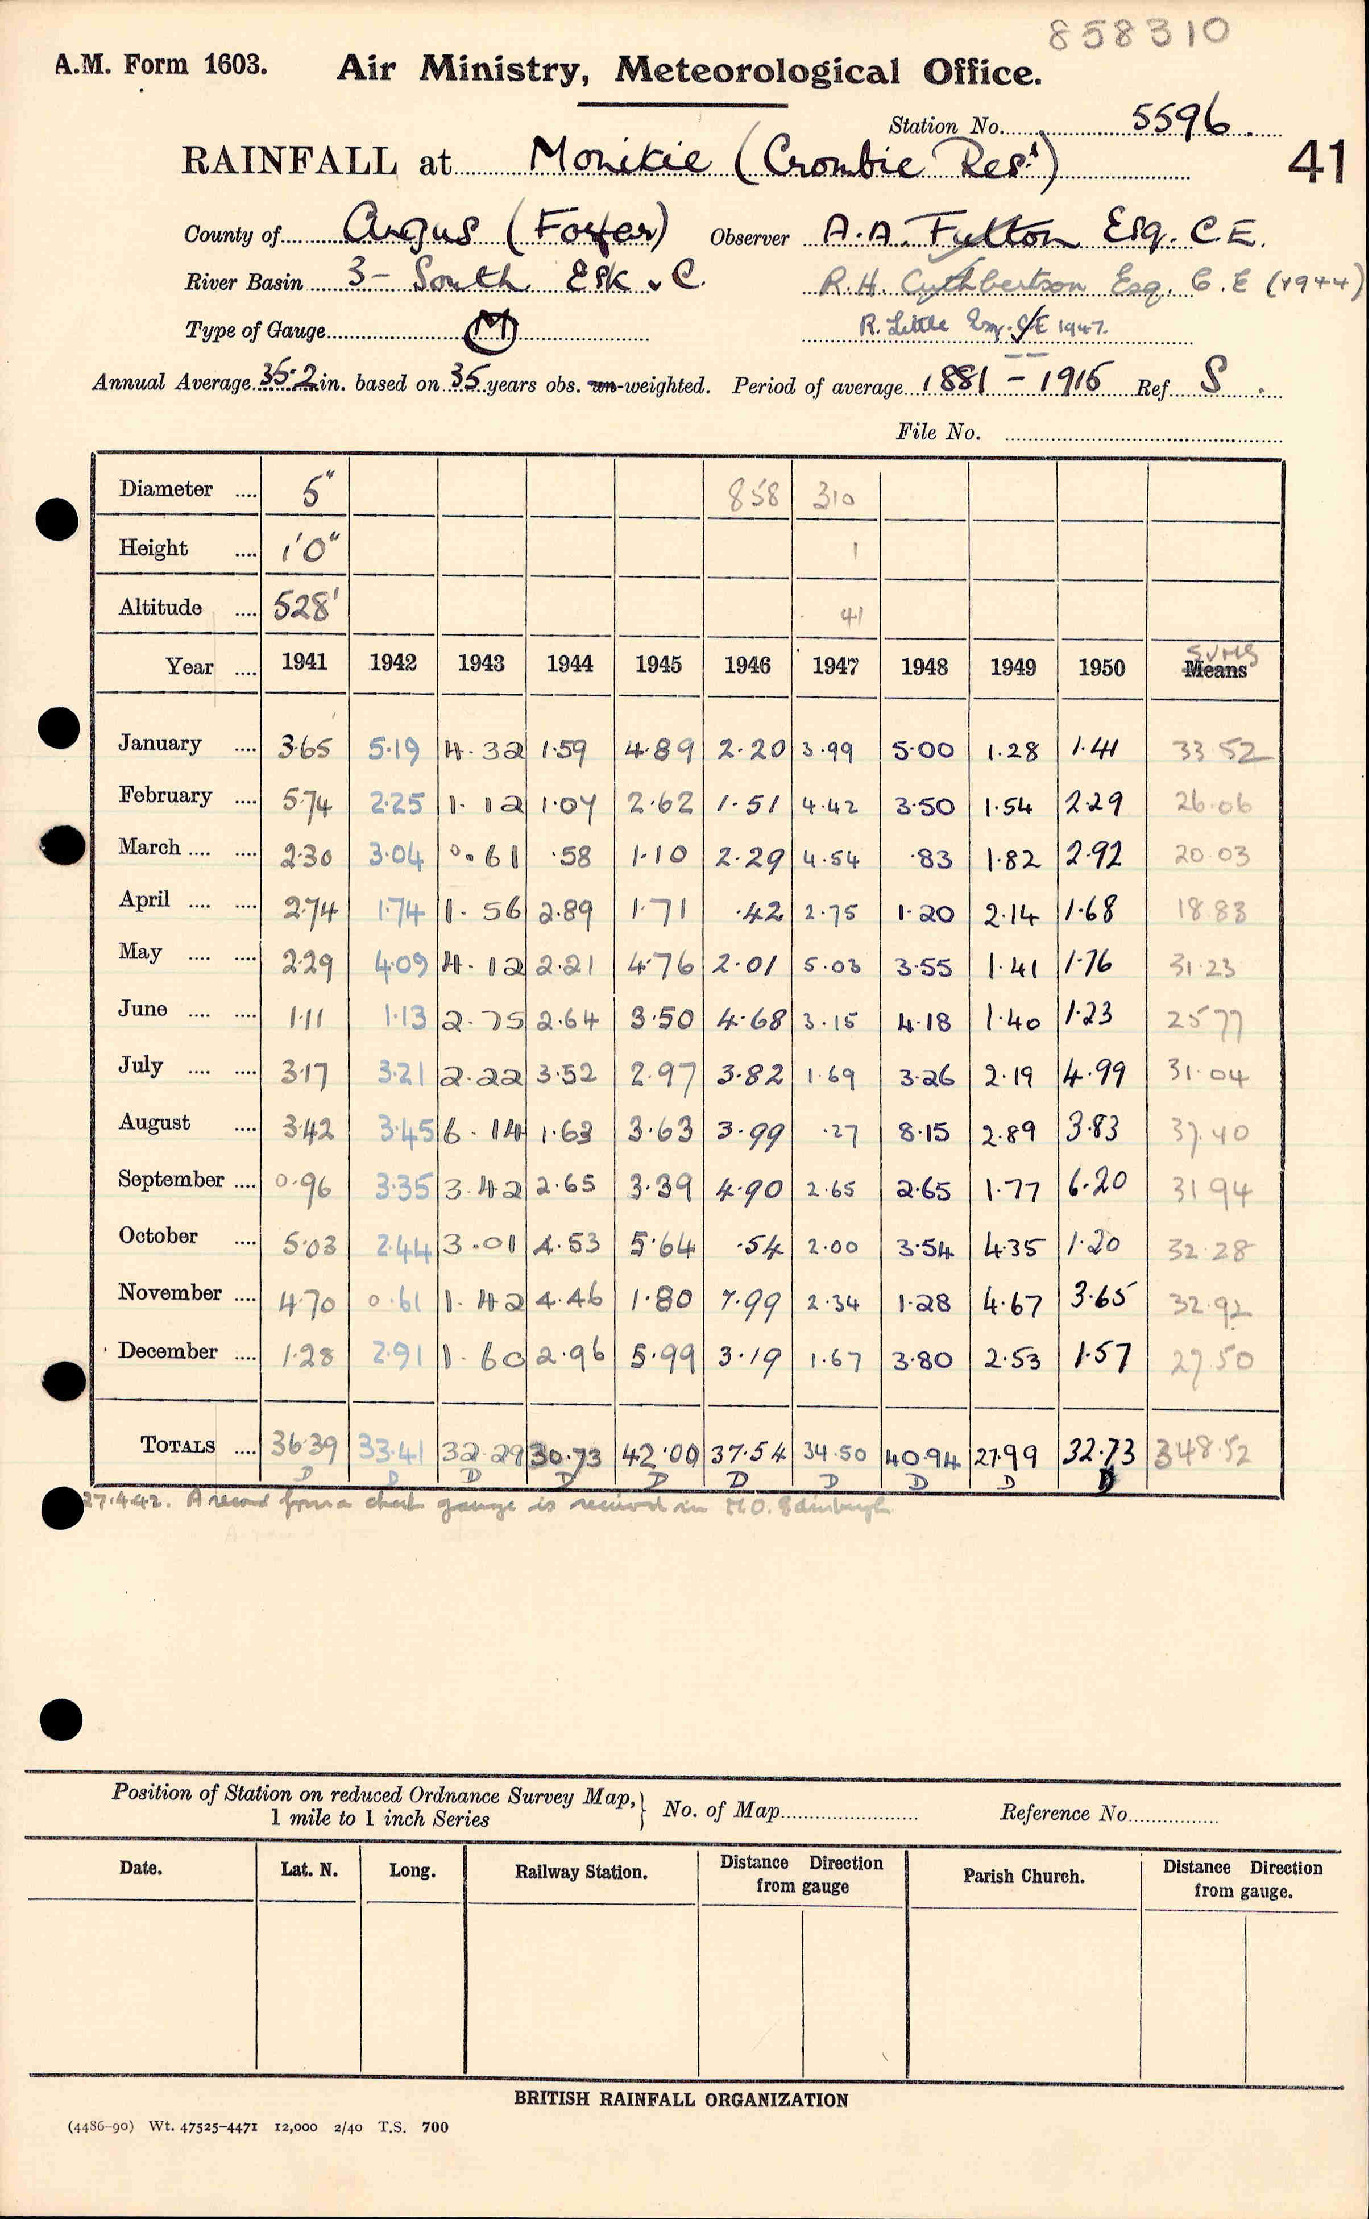 858310
A.M. Form 1603. Air Ministry, Meteorological Office.
Station No. 5596.
RAINFALL at Monikie (Crombie Resr) 41
County of Angus (Forfar) Observer A.A. Fulton Esq. C.E.
River Basin 3- South Esk & C. R.H. Cuthbertson Esq. C.E (1944)
Type of Gauge M R. Little Esq. CE 1947.
Annual Average 35.2 in. based on 35 years obs. un-weighted. Period of average 1881 - 1915 Ref. S.
File No.
Diameter .... 5" 858 310
Height .... 1'0" 1
Altitude .... 528' 41
Year .... 1941 1942 1943 1944 1945 1946 1947 1948 1949 1950 Means SUMS
January .... 3.65 5.19 4.32 1.59 4.89 2.20 3.99 5.00 1.28 1.41 33.52
February .... 5.74 2.25 1.12 1.07 2.62 1.51 4.42 3.50 1.54 2.29 26.06
March .... .... 2.30 3.04 0.61 .58 1.10 2.29 4.54 .83 1.82 2.92 20.03
April .... .... 2.74 1.74 1.56 2.89 1.71 .42 2.75 1.20 2.14 1.68 18.83
May .... .... 2.29 4.09 4.12 2.21 4.76 2.01 5.03 3.55 1.41 1.76 31.23
June .... .... 1.11 1.13 2.75 2.64 3.50 4.68 3.15 4.18 1.40 1.23 25.77
July .... .... 3.17 3.21 2.22 3.52 2.97 3.82 1.69 3.26 2.19 4.99 31.04
August .... 3.42 3.45 6.14 1.63 3.63 3.99 .27 8.15 2.89 3.83 37.40
September .... 0.96 3.35 3.42 2.65 3.39 4.90 2.65 2.65 1.77 6.20 31.94
October .... 5.03 2.44 3.01 4.53 5.64 .54 2.00 3.54 4.35 1.20 32.28
November .... 4.70 0.61 1.42 4.46 1.80 7.99 2.34 1.28 4.67 3.65 32.92
December .... 1.28 2.91 1.60 2.96 5.99 3.19 1.67 3.80 2.53 1.57 27.50
TOTALS .... 36.39 33.41 32.29 30.73 42.00 37.54 34.50 40.94 27.99 32.73 348.52
D D D D D D D D D D
27.4.42. A record from a check gauge is received in M.O. Edinburgh
Position of Station on reduced Ordnance Survey Map, 1 mile to 1 inch Series } No. of Map Reference No.
Date. Lat. N. Long. Railway Station. Distance Direction from gauge Parish Church. Distance Direction from gauge.
BRITISH RAINFALL ORGANIZATION
(4486-90) Wt. 47525-4471 12,000 2/40 T.S. 700